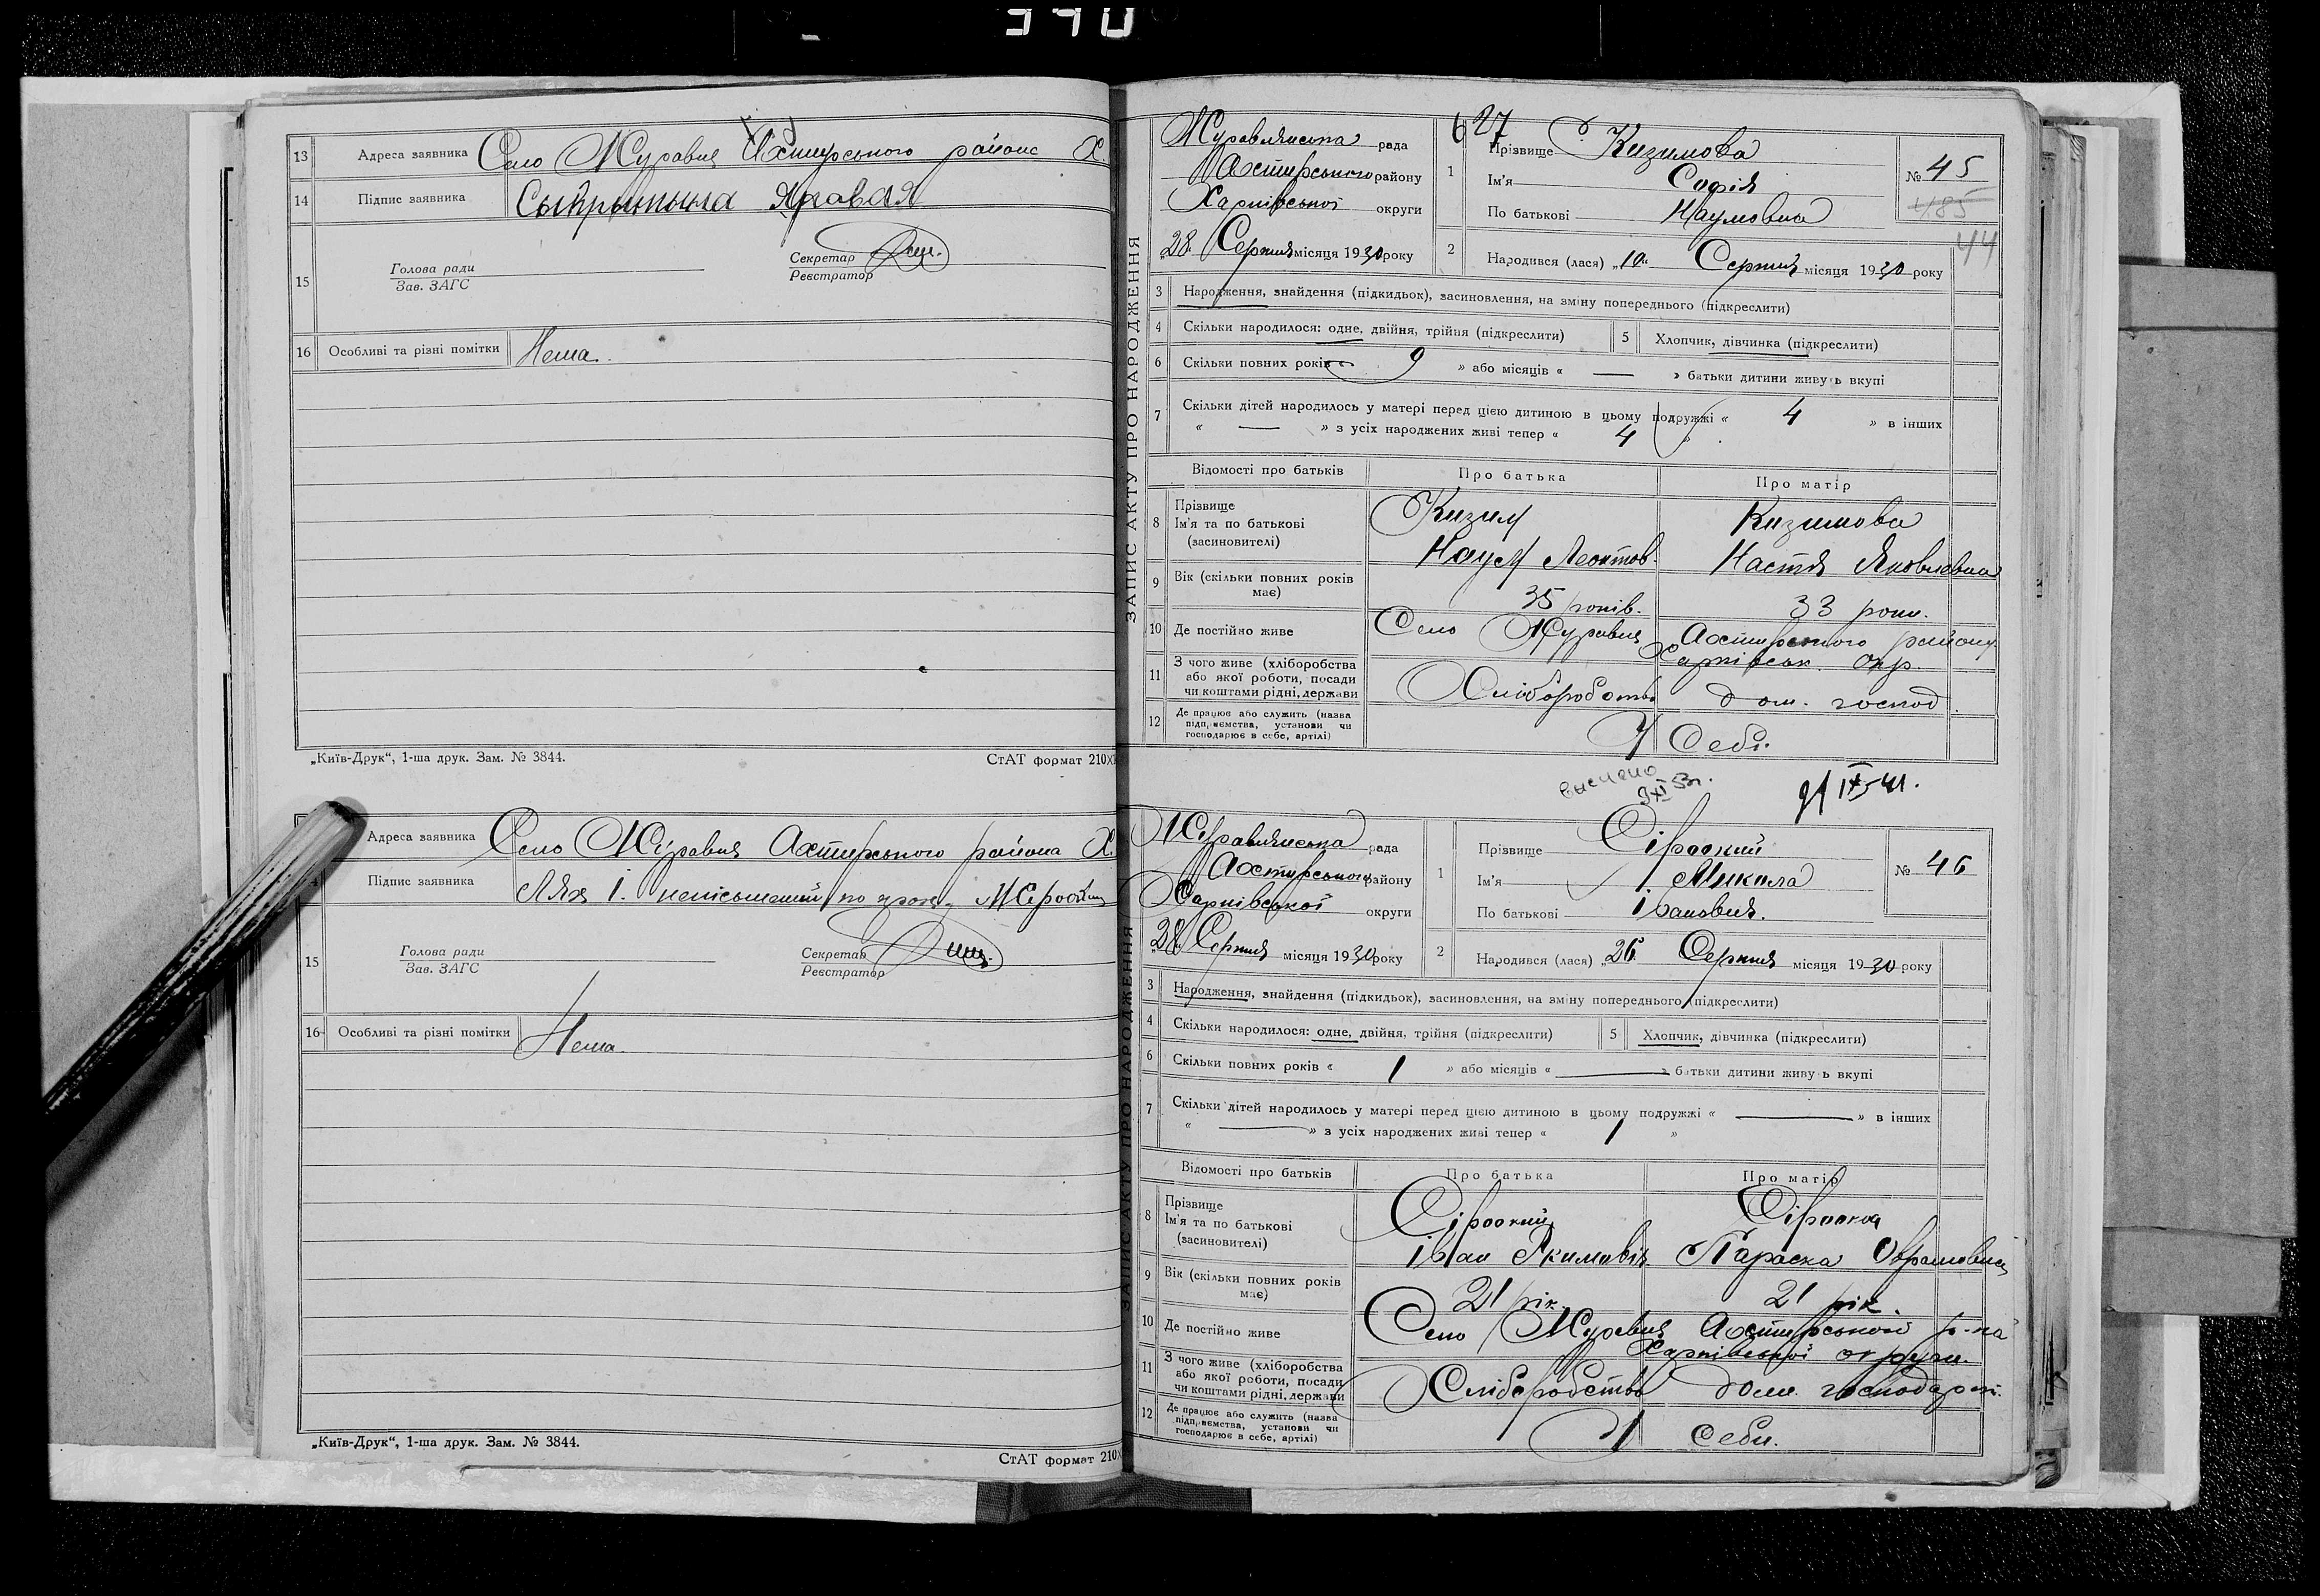 390
13 Адреса заявника Село Журавне Ахтирського района Х.
14 Підпис заявника
15 Голова ради
Зав. ЗАГС
Секретар
Реєстратор
16 Особливі та різні помітки Нема.
„Київ-Друк“, 1-ша друк. Зам. № 3844.
СтАТ формат 210
Адреса заявника Село Журавне Ахтирського района Х.
Підпис заявника
15 Голова ради
Зав. ЗАГС
Секретар
Реєстратор
16 Особливі та різні помітки Нема.
„Київ-Друк“, 1-ша друк. Зам. № 3844.
СтАТ формат 210
ЗАПИС АКТУ ПРО НАРОДЖЕННЯ
627
Журавлянська рада
Ахтирського району
Харківської округи
„28“ Серпня місяця 1930 року
1 Прізвище Кизимова
Ім'я Софія
По батькові Наумовна
№ 45
485
44
2 Народився (лася) „10“ Серпня місяця 1930 року
3 Народження, знайдення (підкидьок), засиновлення, на зміну попереднього (підкреслити)
4 Скільки народилося: одне, двійня, трійня (підкреслити) 5 Хлопчик, дівчинка (підкреслити)
6 Скільки повних років « 9 » або місяців « — » батьки дитини живуть вкупі
7 Скільки дітей народилось у матері перед цією дитиною в цьому подружжі « 4 » в інших
« — » з усіх народжених живі тепер « 4 »
Відомості про батьків Про батька Про матір
8 Прізвище
Ім'я та по батькові
(засиновителі)
Кизим Кизимова
Наум Леонтов. Настя Яковлевна
9 Вік (скільки повних років має) 35 років. 33 роки.
10 Де постійно живе Село Журавне Ахтирського району
Харківськ. окр.
11 З чого живе (хліборобства
або якої роботи, посади
чи коштами рідні, держави
Хліборобство дом. господ.
12 Де працює або служить (назва
підприємства, установи чи
господарює в себе, артілі)
У Себе.
ЗАПИС АКТУ ПРО НАРОДЖЕННЯ
Журавлянська рада
Ахтирського району
Харківської округи
„28“ Серпня місяця 1930 року
1 Прізвище Сіроокий
Ім'я Микола
По батькові Іванович.
№ 46
2 Народився (лася) „26“ Серпня місяця 1930 року
3 Народження, знайдення (підкидьок), засиновлення, на зміну попереднього (підкреслити)
4 Скільки народилося: одне, двійня, трійня (підкреслити) 5 Хлопчик, дівчинка (підкреслити)
6 Скільки повних років « 1 » або місяців « — » батьки дитини живуть вкупі
7 Скільки дітей народилось у матері перед цією дитиною в цьому подружжі « — » в інших
« — » з усіх народжених живі тепер « 1 »
Відомості про батьків Про батька Про матір
8 Прізвище
Ім'я та по батькові
(засиновителі)
Сіроокий Сіроока
Іван Якимович Параска Оврамовна
9 Вік (скільки повних років має) 21 рік. 21 рік.
10 Де постійно живе Село Журавне Ахтирського р-на
Харківської округи.
11 З чого живе (хліборобства
або якої роботи, посади
чи коштами рідні, держави
Хліборобство дом. господарст.
12 Де працює або служить (назва
підприємства, установи чи
господарює в себе, артілі)
У себе.